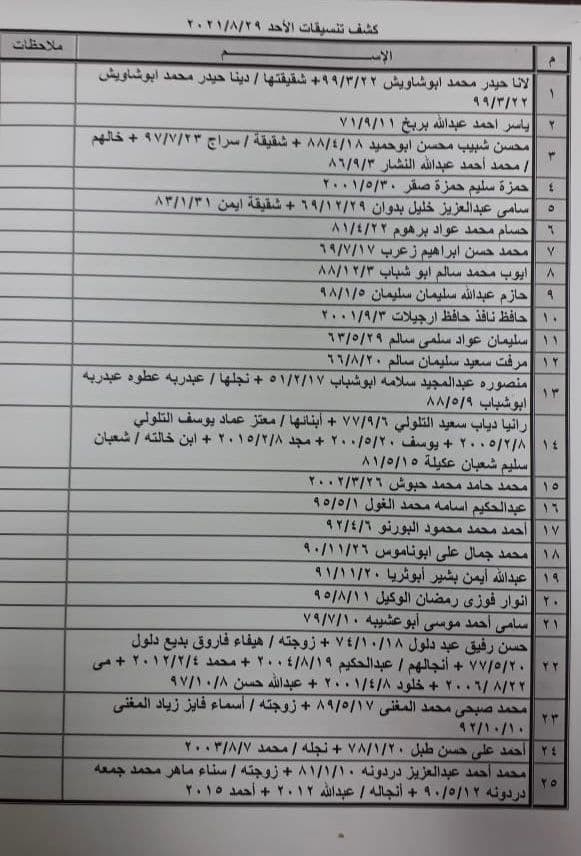 كشف تنسيقات الأحد ٢٠٢١/٨/٢٩
م الإســـم ملاحظات
١ لانا حيدر محمد ابوشاويش ٩٩/٣/٢٢+ شقيقتها / دينا حيدر محمد ابوشاويش
٩٩/٣/٢٢
٢ ياسر احمد عبدالله بربخ ٧١/٩/١١
٣ محسن شبيب محسن ابوحميد ٨٨/٤/١٨ + شقيقة / سراج ٩٧/٧/٢٣ + خالهم
/ محمد أحمد عبدالله النشار ٨٦/٩/٣
٤ حمزة سليم حمزة صقر ٢٠٠١/٥/٣٠
٥ سامى عبدالعزيز خليل بدوان ٦٩/١٢/٢٩ + شقيقة ايمن ٨٣/١/٣١
٦ حسام محمد عواد برهوم ٨١/٤/٢٢
٧ محمد حسن ابراهيم زعرب ٦٩/٧/١٧
٨ ايوب محمد سالم ابو شباب ٨٨/١٢/٣
٩ حازم عبدالله سليمان سليمان ٩٨/١/٥
١٠ حافظ نافذ حافظ ارجيلات ٢٠٠١/٩/٣
١١ سليمان عواد سلمى سالم ٦٣/٥/٢٩
١٢ مرفت سعيد سليمان سالم ٦٦/٨/٢٠
١٣ منصوره عبدالمجيد سلامه ابوشباب ٥١/٢/١٧ + نجلها / عبدربه عطوه عبدربه
ابوشباب ٨٨/٥/٩
١٤ رانيا دياب سعيد التلولي ٧٧/٩/٦ + أبنائها / معتز عماد يوسف التلولي
٢٠٠٥/٢/٨ + يوسف ٢٠٠/٥/٢٠ + مجد ٢٠١٥/٢/٨ + ابن خالته / شعبان
سليم شعبان عكيلة ٨١/٥/١٥
١٥ محمد حامد محمد حبوش ٢٠٠٢/٣/٢٦
١٦ عبدالحكيم اسامه محمد الغول ٩٥/٥/١
١٧ أحمد محمد محمود البورنو ٩٢/٤/٦
١٨ محمد جمال على ابوناموس ٩٠/١١/٢٦
١٩ عبدالله أيمن بشير أبوثريا ٩١/١١/٢٠
٢٠ انوار فوزى رمضان الوكيل ٩٥/٨/١١
٢١ سامى أحمد موسى أبو عشيبه ٧٩/٧/١٠
٢٢ حسن رفيق عبد دلول ٧٤/١٠/١٨ + زوجته / هيفاء فاروق بديع دلول
٧٧/٥/٢٠ + أنجالهم / عبدالحكيم ٢٠٠٤/٨/١٩ + محمد ٢٠١٢/٢/٤ + مى
٢٠٠٦/٨/٢٢ + خلود ٢٠٠١/٤/٨ + عبدالله حسن ٩٧/١٠/٨
٢٣ محمد صبحى محمد المغنى ٨٩/٥/١٧ + زوجته / أسماء فايز زياد المغنى
٩٢/١٠/١٠
٢٤ أحمد على حسن طبل ٧٨/١/٢٠ + نجله / محمد ٢٠٠٣/٨/٧
٢٥ محمد أحمد عبدالعزيز دردونه ٨١/١/١٠ + زوجته / سناء ماهر محمد جمعه
دردونه ٩٠/٥/١٢ + أنجاله / عبدالله ٢٠١٢ + أحمد ٢٠١٥